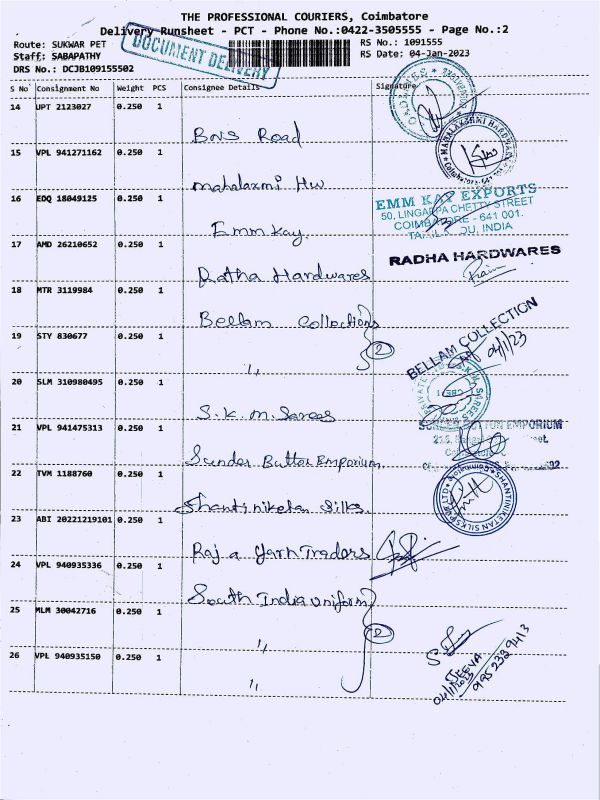 THE PROFESSIONAL COURIERS, Coimbatore
Delivery Runsheet - PCT - Phone No.:0422-3505555 - Page No.:2
Route: SUKWAR PET
RS No.: 1091555
Staff: SABAPATHY
RS Date: 04-Jan-2023
DRS No.: DCJB109155502
DOCUMENT DELIVERY
S No Consignment No Weight PCS Consignee Details Signature
14 UPT 2123027 0.250 1
Road
15 VPL 941271162 0.250 1
mahalaxmi Hw
MAHALAKSHMI HARDWARE
16 EDQ 18049125 0.250 1
Emm Kay.
EMM KAY EXPORTS
50, LINGAPPA CHETTY STREET
COIMBATORE - 641 001.
INDIA
17 AMD 26210652 0.250 1
Ratha Hardwares
RADHA HARDWARES
18 MTR 3119984 0.250 1
Bellam Collections
BELLAM COLLECTION
04/1/23
19 STY 830677 0.250 1
,, 2
20 SLM 310980495 0.250 1
S.K.M. Sarees
21 VPL 941475313 0.250 1
Sundar Button Emporium
BUTTON EMPORIUM
22 TVM 1188760 0.250 1
Shantiniketan Silks
SHANTINIKETAN SILKS
23 ABI 20221219101 0.250 1
Raja Yarn Traders
24 VPL 940935336 0.250 1
South India Uniform
25 MLM 30042716 0.250 1
,,
26 VPL 940935150 0.250 1
,,
JEEVA